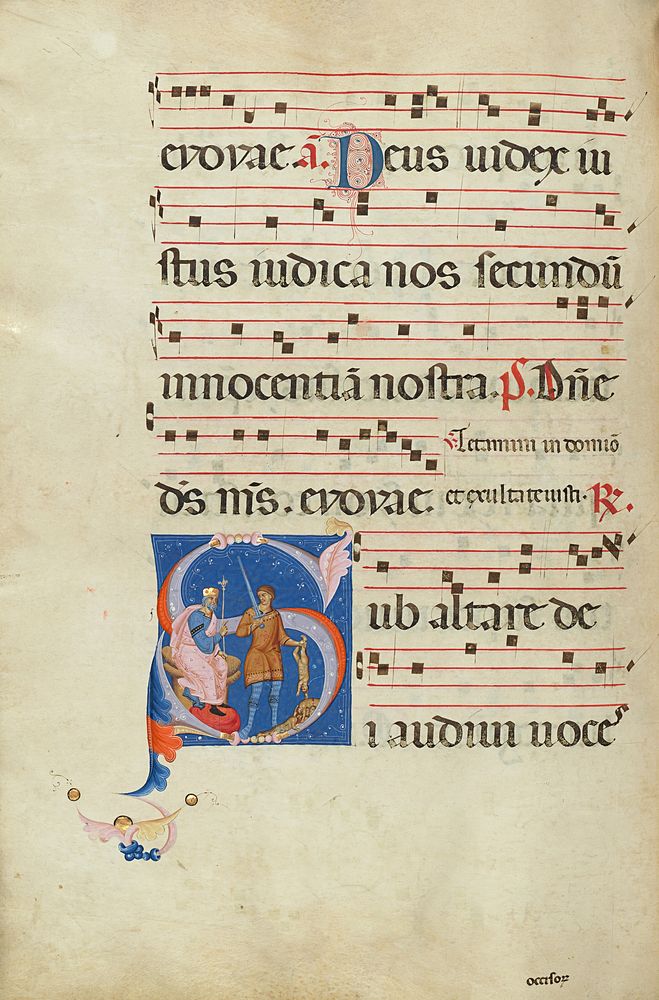 evovae. ā. Deus iudex iu
stus iudica nos secundū
innocentiā nostra. Ps. Dn̄e
dn̄s nr̄s. evovae. ℣. Letamini in domino
et exultate iusti. ℟.
Sub altare de
i audiui uoce
occisoꝝ